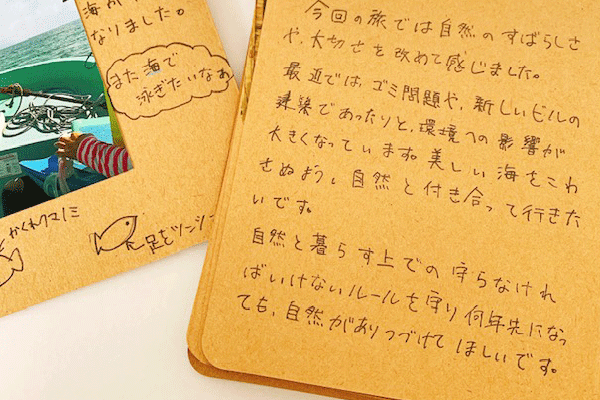 海が
なりました。
また海で
泳ぎたいなぁ
かくれクマノミ
足をツンツン
今回の旅では自然のすばらしさ
や、大切さを改めて感じました。
最近では、ゴミ問題や、新しいビルの
建築であったりと、環境への影響が
大きくなっています。美しい海をこわ
さぬよう、自然と付き合って行きた
いです。
自然と暮らす上での守らなけれ
ばいけないルールを守り何年先になっ
ても、自然がありつづけてほしいです。